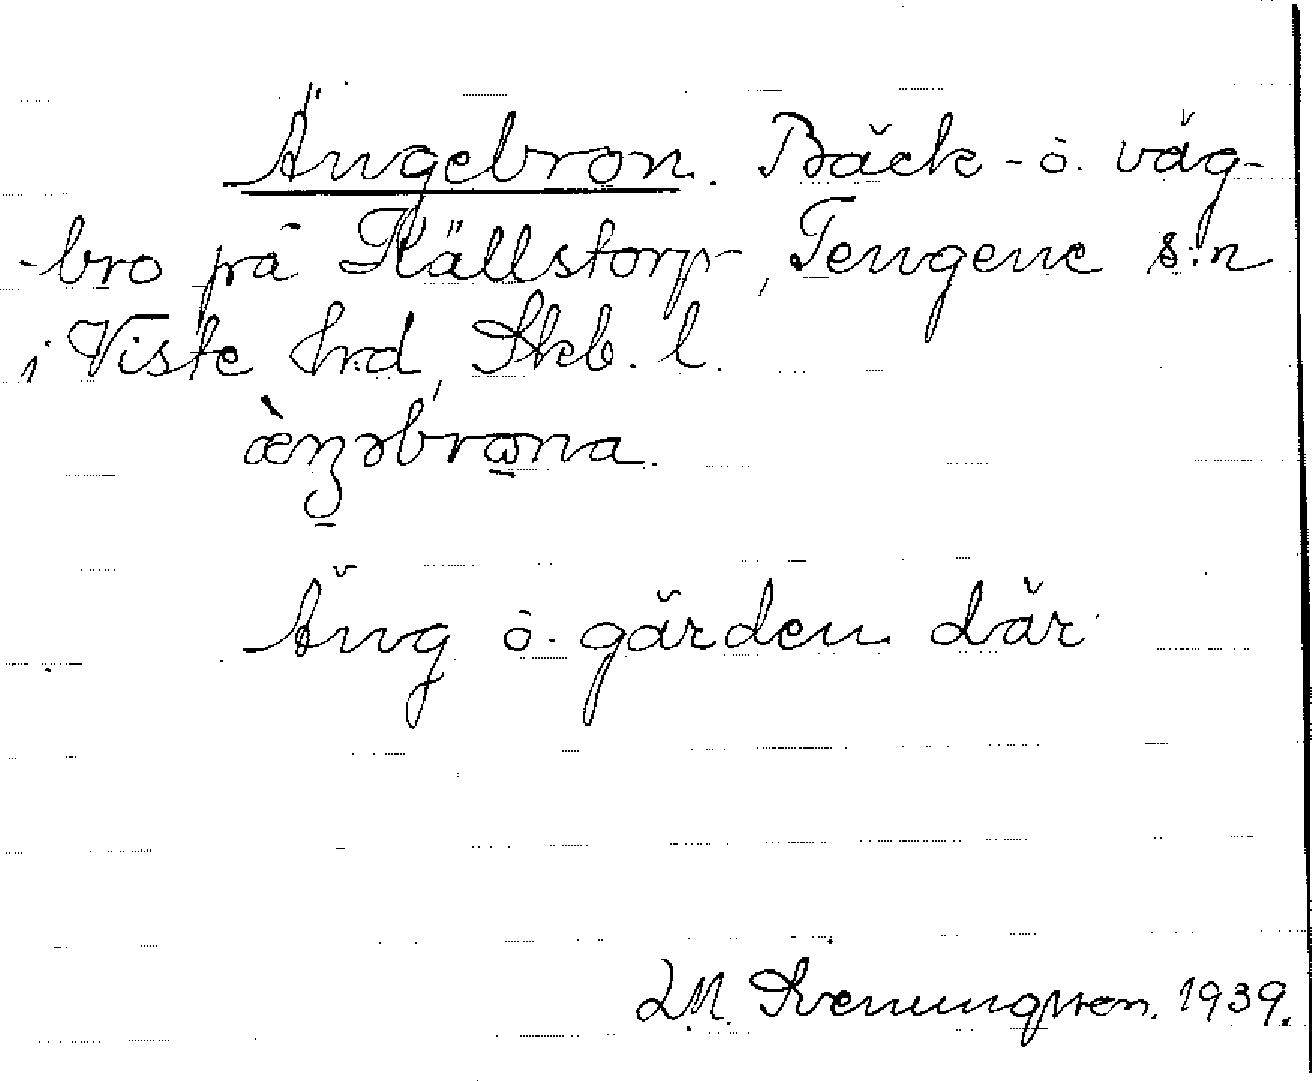 Ängebron. Bäck- o. väg-
-bro på Källstorp, Tengene s:n
i Viste hrd, Skb. l.
æ̀ŋəbrωna.
Äng o. gärden där
L.M. Svenungsson. 1939.